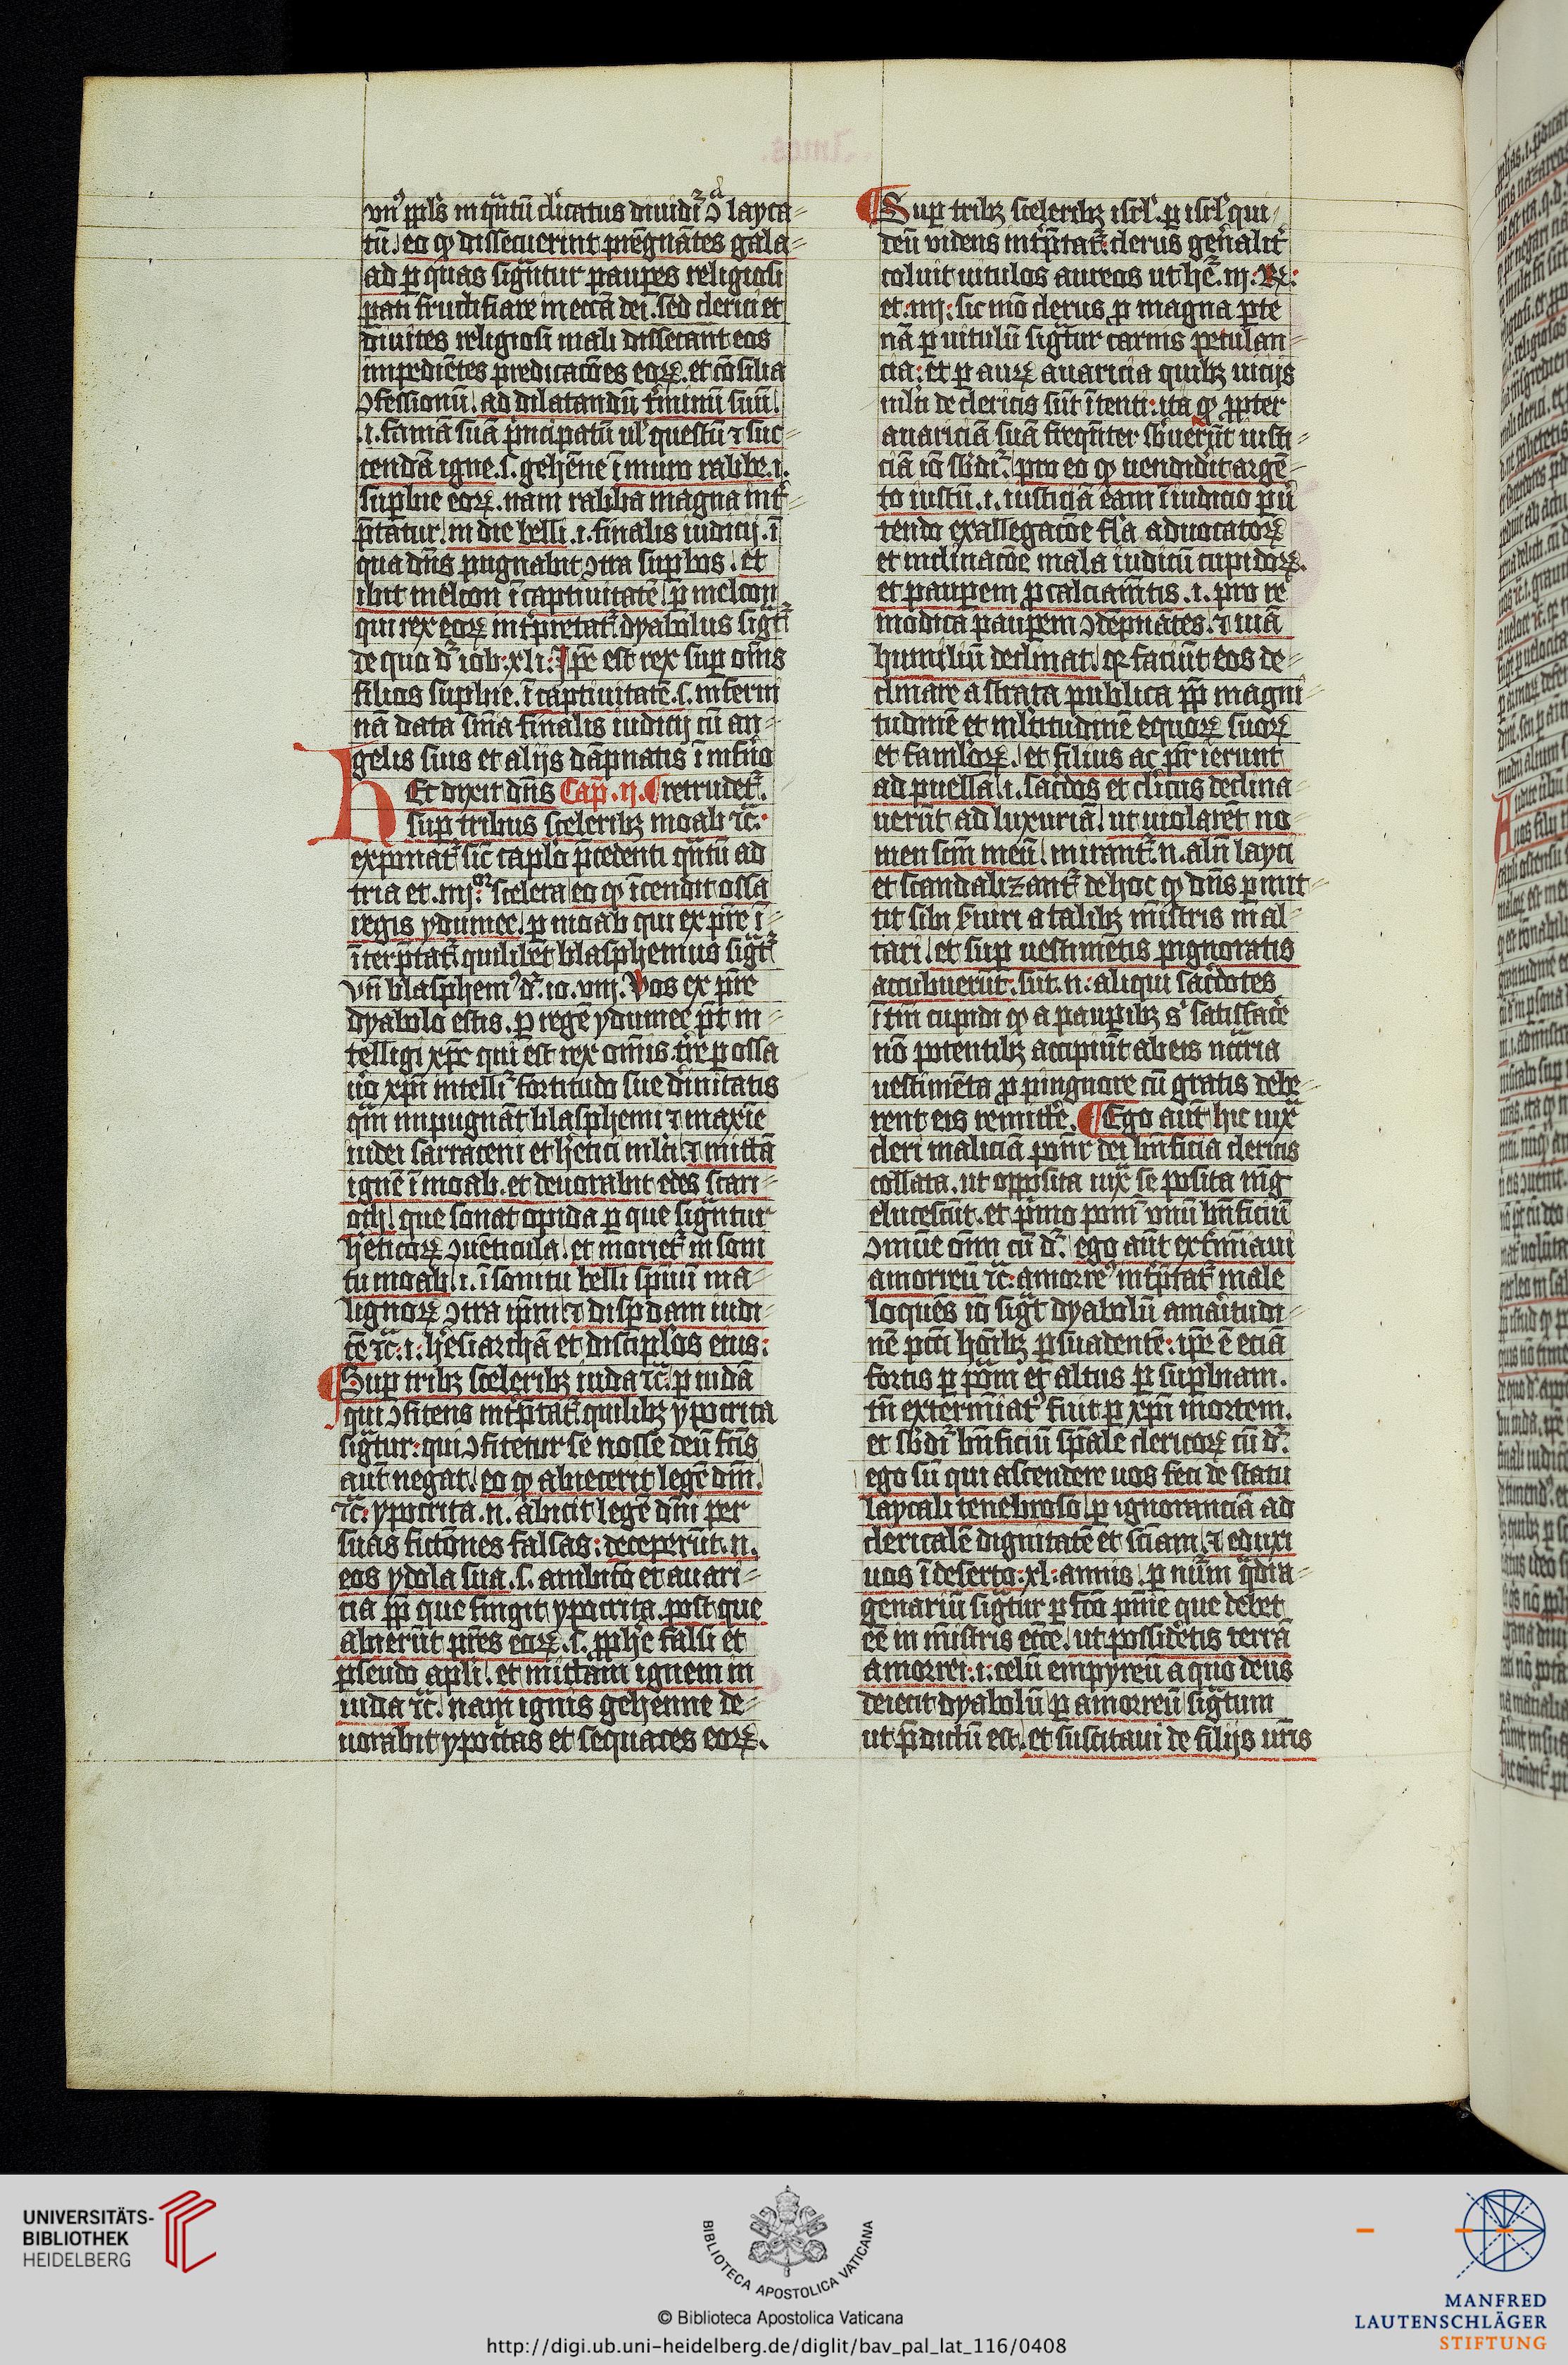 vn᷒ ppl̄s in q̄ntū cl̓icatus diuidit᷑ ↄᵃ layca⸗
tū. eo ꝙ dissecuerint pregnātes gala⸗
ad ꝑ quas sigñtur paupes religiosi
pati fructifiare in ecc̄a dei. sed clerici et
diuites religiosi mali dissecant eos
impediētes predicac̄oes eoꝝ. et cōsilia
ↄfessionū. ad dilatandū t̓minū suū.
.i. famā suā p̓ncipatū ul̓ questū ⁊ suc⸗
cendā igne .s. gehēne ī muro rabbe .i.
supbie eoꝝ. nam rabba magna int̓
p̄tatur. in die belli .i. finalis iudicij. ī
qua dn̄s pugnabit ↄtra supbos. et
ibit melcon ī captiuitatē. ꝑ melcon
qui rex eoꝝ int̓pretat᷑ dyabolus sigt᷑
de quo d᷑ iob. xli. Ip̄e est rex sup om̄s
filios supbie. ī captiuitatē .s. inferni
nā data sn̄ia finalis iudicij cū an⸗
gelis suis et alijs dāpnatis ī inf̓no
Et dixit dn̄s Cap̄. ij. ¶ retrudet᷑.
H sup tribus sceleribꝫ moab ⁊c̄.
exponat᷑ sic̄ capl̄o p̄cedenti q̄ntū ad
tria et .iiijᵒʳ scelera eo ꝙ īcendit ossa
regis ydumee. ꝑ moab qui ex pr̄e ī⸗
īterp̄tat᷑ quilibet blasphemus sigt᷑
vn̄ blasphem᷒ d᷑. io. viij. Vos ex pr̄e
dyabolo estis. ꝑ regē ydumee p̄t in⸗
telligi xp̄c qui est rex om̄is t̓re ꝑ ossa
u̓o xp̄i intelli᷑ fortitudo sue diuinitatis
q̄m inpugnāt blasphemi ⁊ maxīe
iudei sarraceni et h̓etici ml̓ti. ⁊ mittā
ignē ī moab. et deuorabit edes scari⸗
oth. que sonat opida ꝑ que sigñtur
h̓eticoꝝ ↄuēticula. et moriet᷑ in soni
tu moab .i. ī sonitu belli sp̄uū ma⸗
lignoꝝ ↄtra ip̄m. ⁊ dispdam iudi⸗
cē ⁊c̄. i. h̓esiarchā et discipl̄os eius.
¶ Sup tribꝫ sceleribꝫ iuda ⁊c̄. ꝑ iudā
qui ↄfitens int̓p̄tat᷑ quilibꝫ ypocrita
sigt̄ur. qui ↄfitetur se nosse deū fc̄is
aut̄ negat. eo ꝙ abiecerit legē dn̄i.
⁊c̄. ypocrita .n. abicit legē dn̄i per
suas fictōnes falsas. deceperūt .n.
eos ydola sua .s. ambitō et auari⸗
cia pp̄ que fingit ypocrita. post que
abierūt pr̄es eoꝝ .s. pph̓e falsi et
pseudo apl̄i. et mittam ignem in
iuda ⁊c̄. nam ignis gehenne de⸗
uorabit ypoc̓tas et sequaces eoꝝ.
¶ Sup tribꝫ sceleribꝫ isrl̄. ꝑ isrl̄ qui⸗
deū videns int̓p̄tat᷑. clerus gen̓alit̓
coluit uitulos aureos ut h̄et᷑ .iij. Rꝫ.
et .iiij. sic mō clerus ꝓ magna pte
nā ꝑ uitulū sigt̄ur carnis petulan⸗
cia. et ꝑ auꝝ auaricia quibꝫ uicijs
ml̓ti de clericis sūt ītenti. ita ꝙ ꝓpter
auariciā suā freqn̄ter sb̓uertūt iusti⸗
ciā iō sb̄dit᷑. pro eo ꝙ uendidit argē⸗
to iustū .i. iusticiā eam ī iudicio pu̓
tendo ex allegac̄oe fl̄a aduocatoꝝ
et inclinac̄oe mala iudicū cupidoꝝ.
et paupem ꝓ calciam̄tis .i. pro re
modica paupem ↄdēpnātes. ⁊ uiā
humiliū declinat. qꝛ faciūt eos de⸗
clinare a strata publica pp̄ magni⸗
tudinē et ml̓titudinē equoꝝ suoꝝ
et famloꝝ. et filius ac pr̄ ierunt
ad puellā .i. sac̓dos et cl̓icus declina⸗
uerūt ad luxuriā. ut uiolarēt no⸗
men scm̄ meū. mirant᷑ .n. aliī layci
et scandalizant᷑ de hoc ꝙ dn̄s pmit⸗
tit sibi s̓uiri a talibꝫ mīstris in al⸗
tari. et sup uestimētis pignoratis
accubuerūt. sūt .n. aliqui sac̓dotes
ī tm̄ cupidi ꝙ a paupibꝫ s᷒ satisfac̓e
nō potentibꝫ accipiūt ab eis nc̄ria
uestimēta ꝓ pinguore cū gratis debe⸗
rent eis remitt̓e. ¶ Ego aut̄ hic iux̄
cleri maliciā ponit̓ dei bn̄ficia clericis
collata. ut opposita iux̄ se posita mg̓
elucescūt. et p̓mo ponit̓ vnū bn̄ficiū
ↄmūe om̄i cū d᷑. ego aut̄ ext̓minaui
amorreū ⁊c̄. amorre᷒ int̓p̄tat᷑ male
loquēs iō sigt̄ dyabolū amaritudi⸗
nē pcc̄i hoībꝫ ꝑsuadentē. ip̄e ē eciā
fortis ꝑ potn̄ciā et altus ꝑ supbiam.
tn̄ extermiat᷒ fuit ꝑ xp̄i mortem.
et sb̄dit᷑ bn̄ficiū sp̄ale clericoꝝ cū d᷑.
ego sū qui ascendere uos feci de statu
laycali tenebroso. ꝑ ignoranciā ad
clericalē dignitatē et sciam. ⁊ eduxi
uos ī deserto. xl. annis. ꝑ nūm q̄dra⸗
genariū sigt̄ur ꝑfc̄o pn̄ie que debet
eē in mīstris ecc̄e. ut possidetis terrā
amorrei .i. celū empyreū a quo deus
deiecit dyabolū ꝑ amorreū sigt̄um
ut p̄dictū est. et suscitaui de filijs ur̄is
UNIVERSITÄTS-
BIBLIOTHEK
HEIDELBERG
BIBLIOTECA APOSTOLICA VATICANA
© Biblioteca Apostolica Vaticana
http://digi.ub.uni-heidelberg.de/diglit/bav_pal_lat_116/0408
MANFRED
LAUTENSCHLÄGER
STIFTUNG